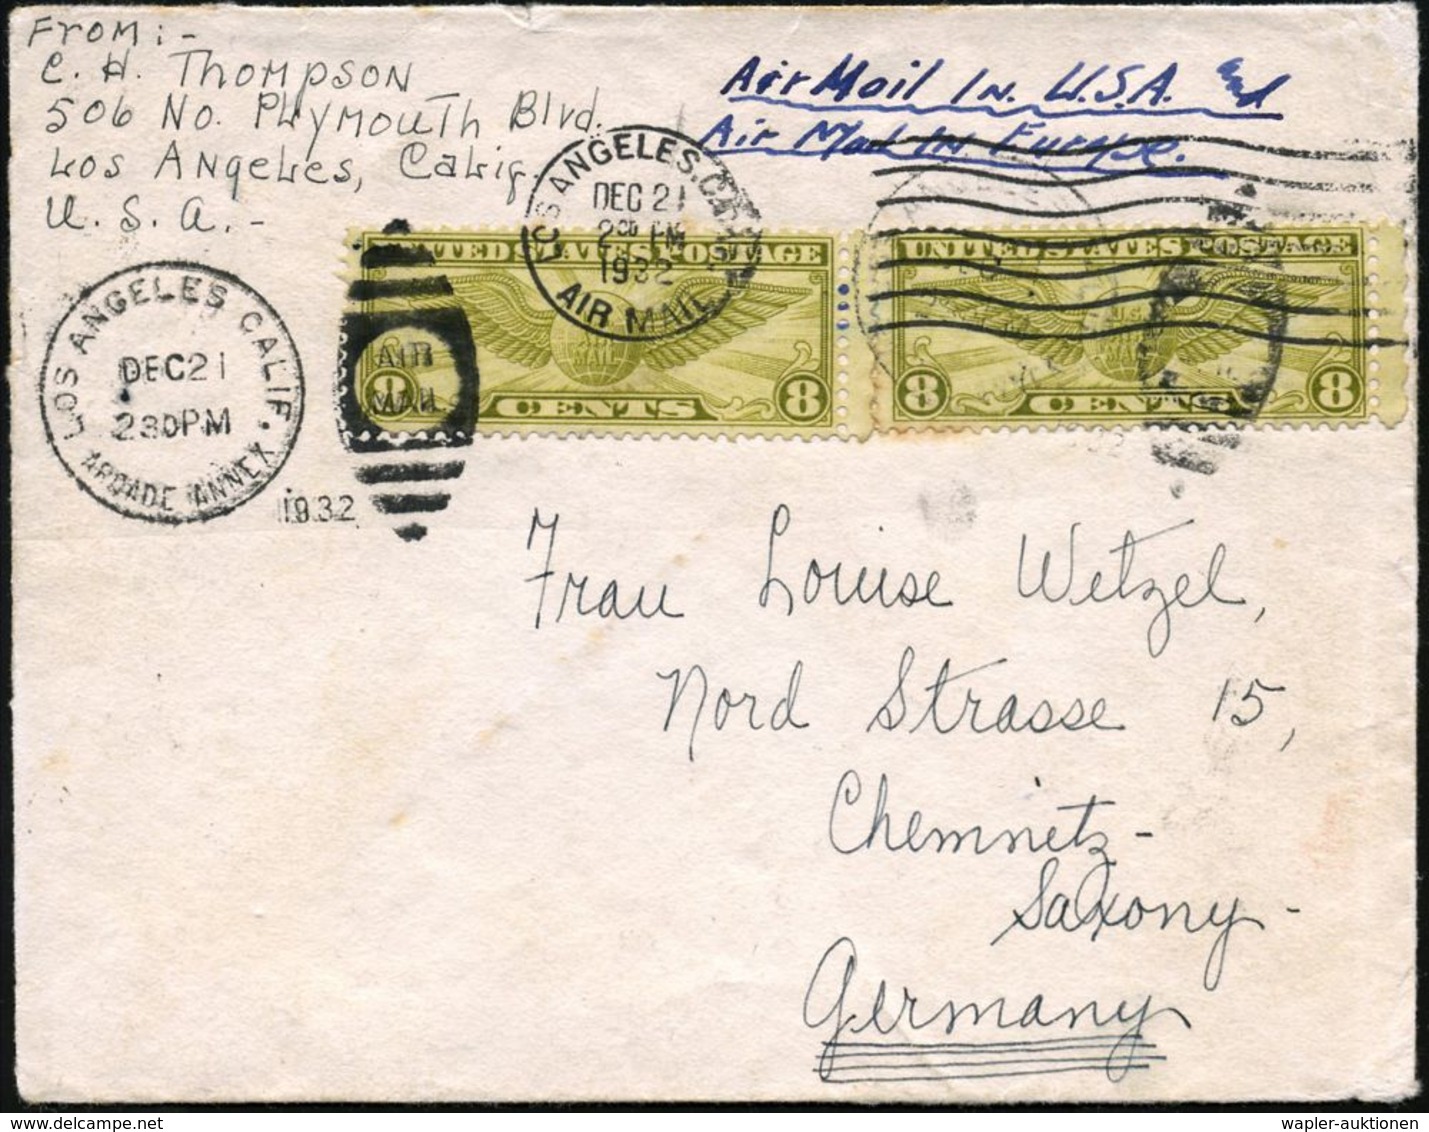 From:-
C. H. Thompson
506 No. Plymouth Blvd.
Los Angeles, Calif.
U. S. A.-
Air Mail In. U.S.A. and
Air Mail In Europe.
LOS ANGELES, CAL
DEC 21
2 30 PM
1932
AIR MAIL
UNITED STATES POSTAGE
U.S.
AIR
MAIL
8 CENTS 8
UNITED STATES POSTAGE
8 CENTS 8
LOS ANGELES CALIF.
DEC 21
2 30 PM
ARCADE ANNEX
1932
AIR
MAIL
Frau Louise Wetzel,
Nord Strasse 15,
Chemnitz-
Saxony-
Germany
wapler-auktionen